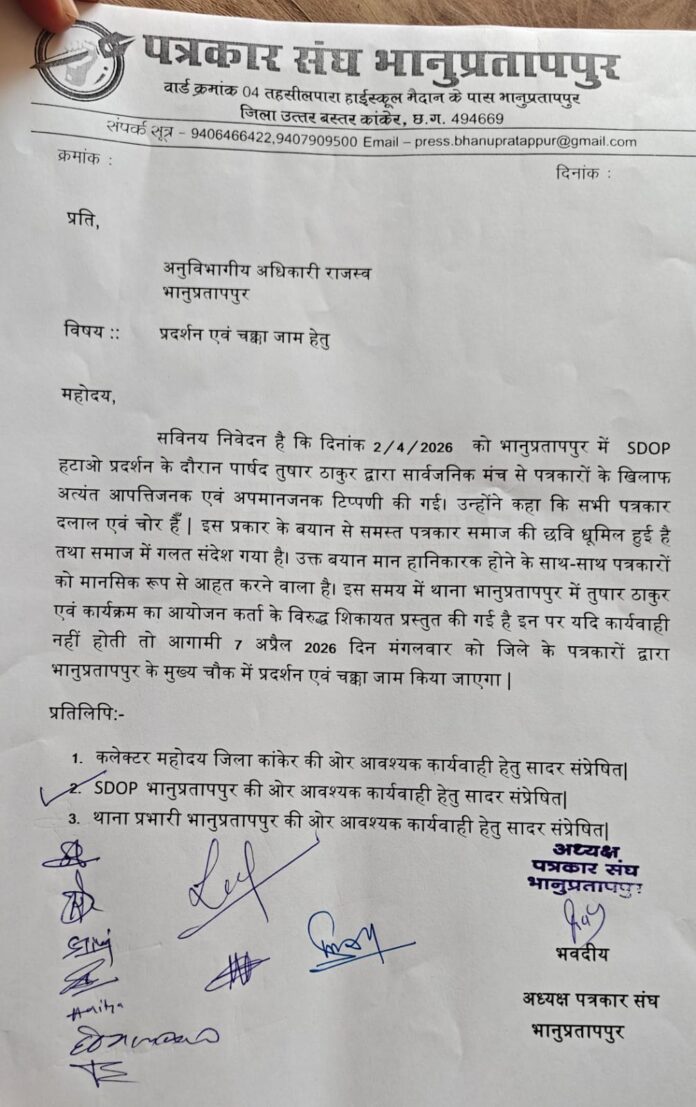 पत्रकार संघ भानुप्रतापपुर
वार्ड क्रमांक 04 तहसीलपारा हाईस्कूल मैदान के पास भानुप्रतापपुर
जिला उत्तर बस्तर कांकेर, छ.ग. 494669
संपर्क सूत्र - 9406466422,9407909500 Email – press.bhanupratappur@gmail.com
क्रमांक :
दिनांक :
प्रति,
अनुविभागीय अधिकारी राजस्व
भानुप्रतापपुर
विषय :: प्रदर्शन एवं चक्का जाम हेतु
महोदय,
सविनय निवेदन है कि दिनांक 2/4/2026 को भानुप्रतापपुर में SDOP
हटाओ प्रदर्शन के दौरान पार्षद तुषार ठाकुर द्वारा सार्वजनिक मंच से पत्रकारों के खिलाफ
अत्यंत आपत्तिजनक एवं अपमानजनक टिप्पणी की गई। उन्होंने कहा कि सभी पत्रकार
दलाल एवं चोर हैँ | इस प्रकार के बयान से समस्त पत्रकार समाज की छवि धूमिल हुई है
तथा समाज में गलत संदेश गया है। उक्त बयान मान हानिकारक होने के साथ-साथ पत्रकारों
को मानसिक रूप से आहत करने वाला है। इस समय में थाना भानुप्रतापपुर में तुषार ठाकुर
एवं कार्यक्रम का आयोजन कर्ता के विरुद्ध शिकायत प्रस्तुत की गई है इन पर यदि कार्यवाही
नहीं होती तो आगामी 7 अप्रैल 2026 दिन मंगलवार को जिले के पत्रकारों द्वारा
भानुप्रतापपुर के मुख्य चौक में प्रदर्शन एवं चक्का जाम किया जाएगा |
प्रतिलिपि:-
1. कलेक्टर महोदय जिला कांकेर की ओर आवश्यक कार्यवाही हेतु सादर संप्रेषित|
2. SDOP भानुप्रतापपुर की ओर आवश्यक कार्यवाही हेतु सादर संप्रेषित|
3. थाना प्रभारी भानुप्रतापपुर की ओर आवश्यक कार्यवाही हेतु सादर संप्रेषित|
अध्यक्ष
पत्रकार संघ
भानुप्रतापपुर
भवदीय
अध्यक्ष पत्रकार संघ
भानुप्रतापपुर